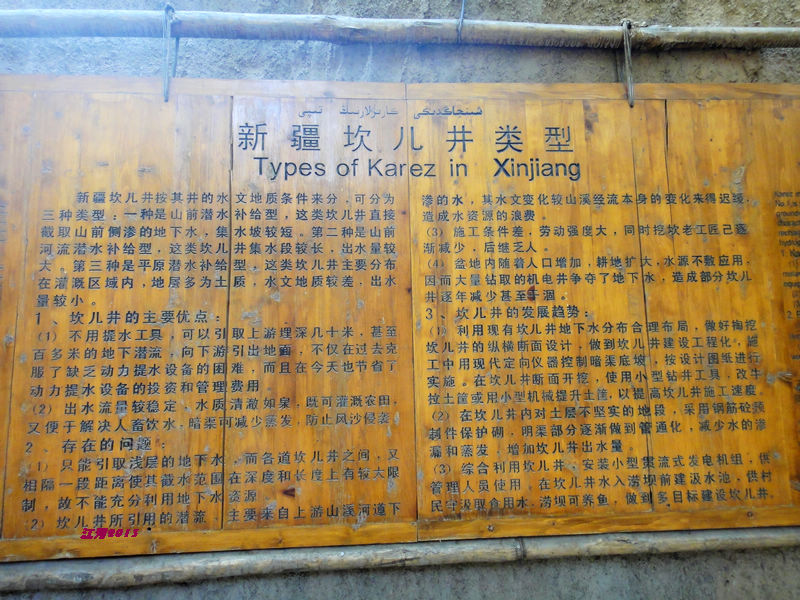 شىنجاڭدىكى كارىزلارنىڭ تىپى
新疆坎儿井类型
Types of Karez in Xinjiang
新疆坎儿井按其井的水文地质条件来分，可分为
三种类型：一种是山前潜水补给型，这类坎儿井直接
截取山前侧渗的地下水，集水坡较短。第二种是山前
河流潜水补给型，这类坎儿井集水段较长，出水量较
大。第三种是平原潜水补给型，这类坎儿井主要分布
在灌溉区域内，地层多为土质，水文地质较差，出水
量较小。
1、坎儿井的主要优点：
（1）不用提水工具，可以引取上游埋深几十米，甚至
百多米的地下潜流，向下游引出地面，不仅在过去克
服了缺乏动力提水设备的困难，而且在今天也节省了
动力提水设备的投资和管理费用
（2）出水流量较稳定、水质清澈如泉，既可灌溉农田，
又便于解决人畜饮水，暗渠可减少蒸发，防止风沙侵袭
2、存在的问题：
（1）只能引取浅层的地下水，而各道坎儿井之间，又
相隔一段距离使其截水范围在深度和长度上有较大限
制，故不能充分利用地下水资源
（2）坎儿井所引用的潜流 主要来自上游山溪河道下
渗的水，其水文变化较山溪经流本身的变化来得迟缓，
造成水资源的浪费。
（3）施工条件差，劳动强度大，同时挖坎老工匠已逐
渐减少，后继乏人。
（4）盆地内随着人口增加，耕地扩大，水源不敷应用，
因而大量钻取的机电井争夺了地下水，造成部分坎儿
井逐年减少甚至干涸。
3、坎儿井的发展趋势：
（1）利用现有坎儿井地下水分布合理布局，做好掏挖
坎儿井的纵横断面设计，做到坎儿井建设工程化，施
工中用现代定向仪器控制暗渠底坡，按设计图纸进行
实施。在坎儿井断面开挖，使用小型钻井工具，改牛
拉土筐或用小型机械提升土筐，以提高坎儿井施工速度
（2）在坎儿井内对土层不坚实的地段，采用钢筋砼预
制件保护砌，明渠部分逐渐做到管道化，减少水的渗
漏和蒸发，增加坎儿井出水量。
（3）综合利用坎儿井，安装小型贯流式发电机组，供
管理人员使用，在坎儿井水入涝坝前建汲水池，供村
民字汲取食用水，涝坝可养鱼，做到多目标建设坎儿井。
江湾2013